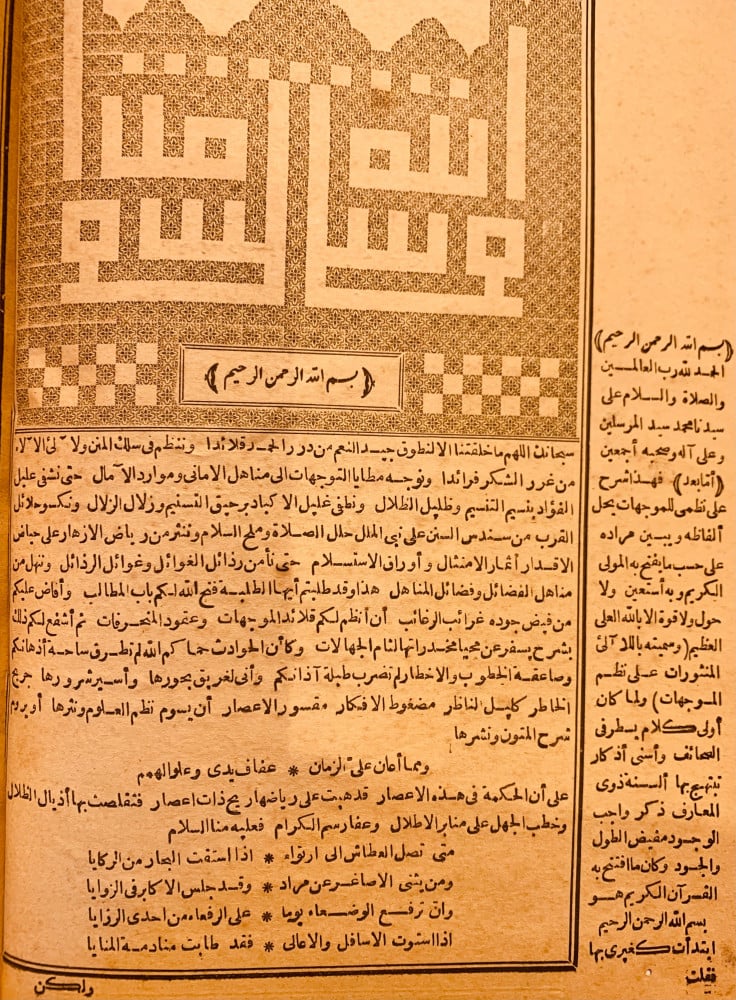 ﴿بسم الله الرحمن الرحيم﴾
سبحانك اللهم ما خلقتنا الا لنطوق جيد النعم من درر الحمد قلائدا وننتظم في سلك المنن ولا آلئ الآلاء
من غرر الشكر فرائدا ونوجه مطايا التوجهات الى مناهل الاماني وموارد الآمال حتى نشفي عليل
الفؤاد بنسيم التنسيم وظليل الظلال ونطفي غليل الاكباد برحيق التسنيم وزلال الزلال ونكسو حلائل
القرب من سندس السنن على نبي الملل حلل الصلاة وملح السلام وننثر من رياض الازهار على حياض
الاقدار أثمار الامتثال وأوراق الاستسلام حتى نأمن رذائل الغوائل وغوائل الرذائل وننهل من
مناهل الفضائل وفضائل المناهل هذا وقد طلبتم أيها الطلبة فتح الله لكم باب المطالب وأفاض عليكم
من فيض جوده غرائب الرغائب أن أنظم لكم قلائد الموجهات وعقود المنحرفات ثم أشفع لكم ذلك
بشرح يسفر عن محيا مخدراتها لثام الجهالات وكأن الحوادث حماكم الله لم تطرق ساحة أذهانكم
وصاعقة الخطوب والاخطار لم تضرب طبلة آذانكم وأنى لغريق بحورها وأسير شرورها جريح
الخاطر كليل الناظر مضغوط الافكار مقسور الاعصار أن يسوم نظم العلوم ونثرها أو يروم
شرح المتون ونشرها
ومما أعان على الزمان * عفاف يدى وعلو الهمم
على أن الحكمة في هذه الاعصار قد هبت على رياضها ريح ذات اعصار فتقلصت بها أذيال الظلال
وخطب الجهل على منابر الاطلال وعفا رسم الكرام فعليه منا السلام
متى تصل العطاش الى ارتواء * اذا استقت البحار من الركايا
ومن يثني الاصاغر عن مراد * وقد جلس الاكابر في الزوايا
وان ترفع الوضعاء يوما * على الرفعاء من احدى الرزايا
اذا استوت الاسافل والاعالي * فقد طابت منادمة المنايا
ولكن
﴿بسم الله الرحمن الرحيم﴾
الحمد لله رب العالمين
والصلاة والسلام على
سيدنا محمد سيد المرسلين
وعلى آله وصحبه أجمعين
﴿أما بعد﴾ فهذا شرح
على نظمي للموجهات يحل
ألفاظه ويبين مراده
على حسب ما يفتح به المولى
الكريم وبه أستعين ولا
حول ولا قوة الا بالله العلي
العظيم (وسميته باللآلئ
المنثورات على نظم
الموجهات) ولما كان
أولى كلام يسطر في
الصحائف وأسنى أذكار
تبتهج بها ألسنة ذوى
المعارف ذكر واجب
الوجود مفيض الطول
والجود وكان ما افتتح به
القرآن الكريم هو
بسم الله الرحمن الرحيم
ابتدأت كغيرى بها
فقلت